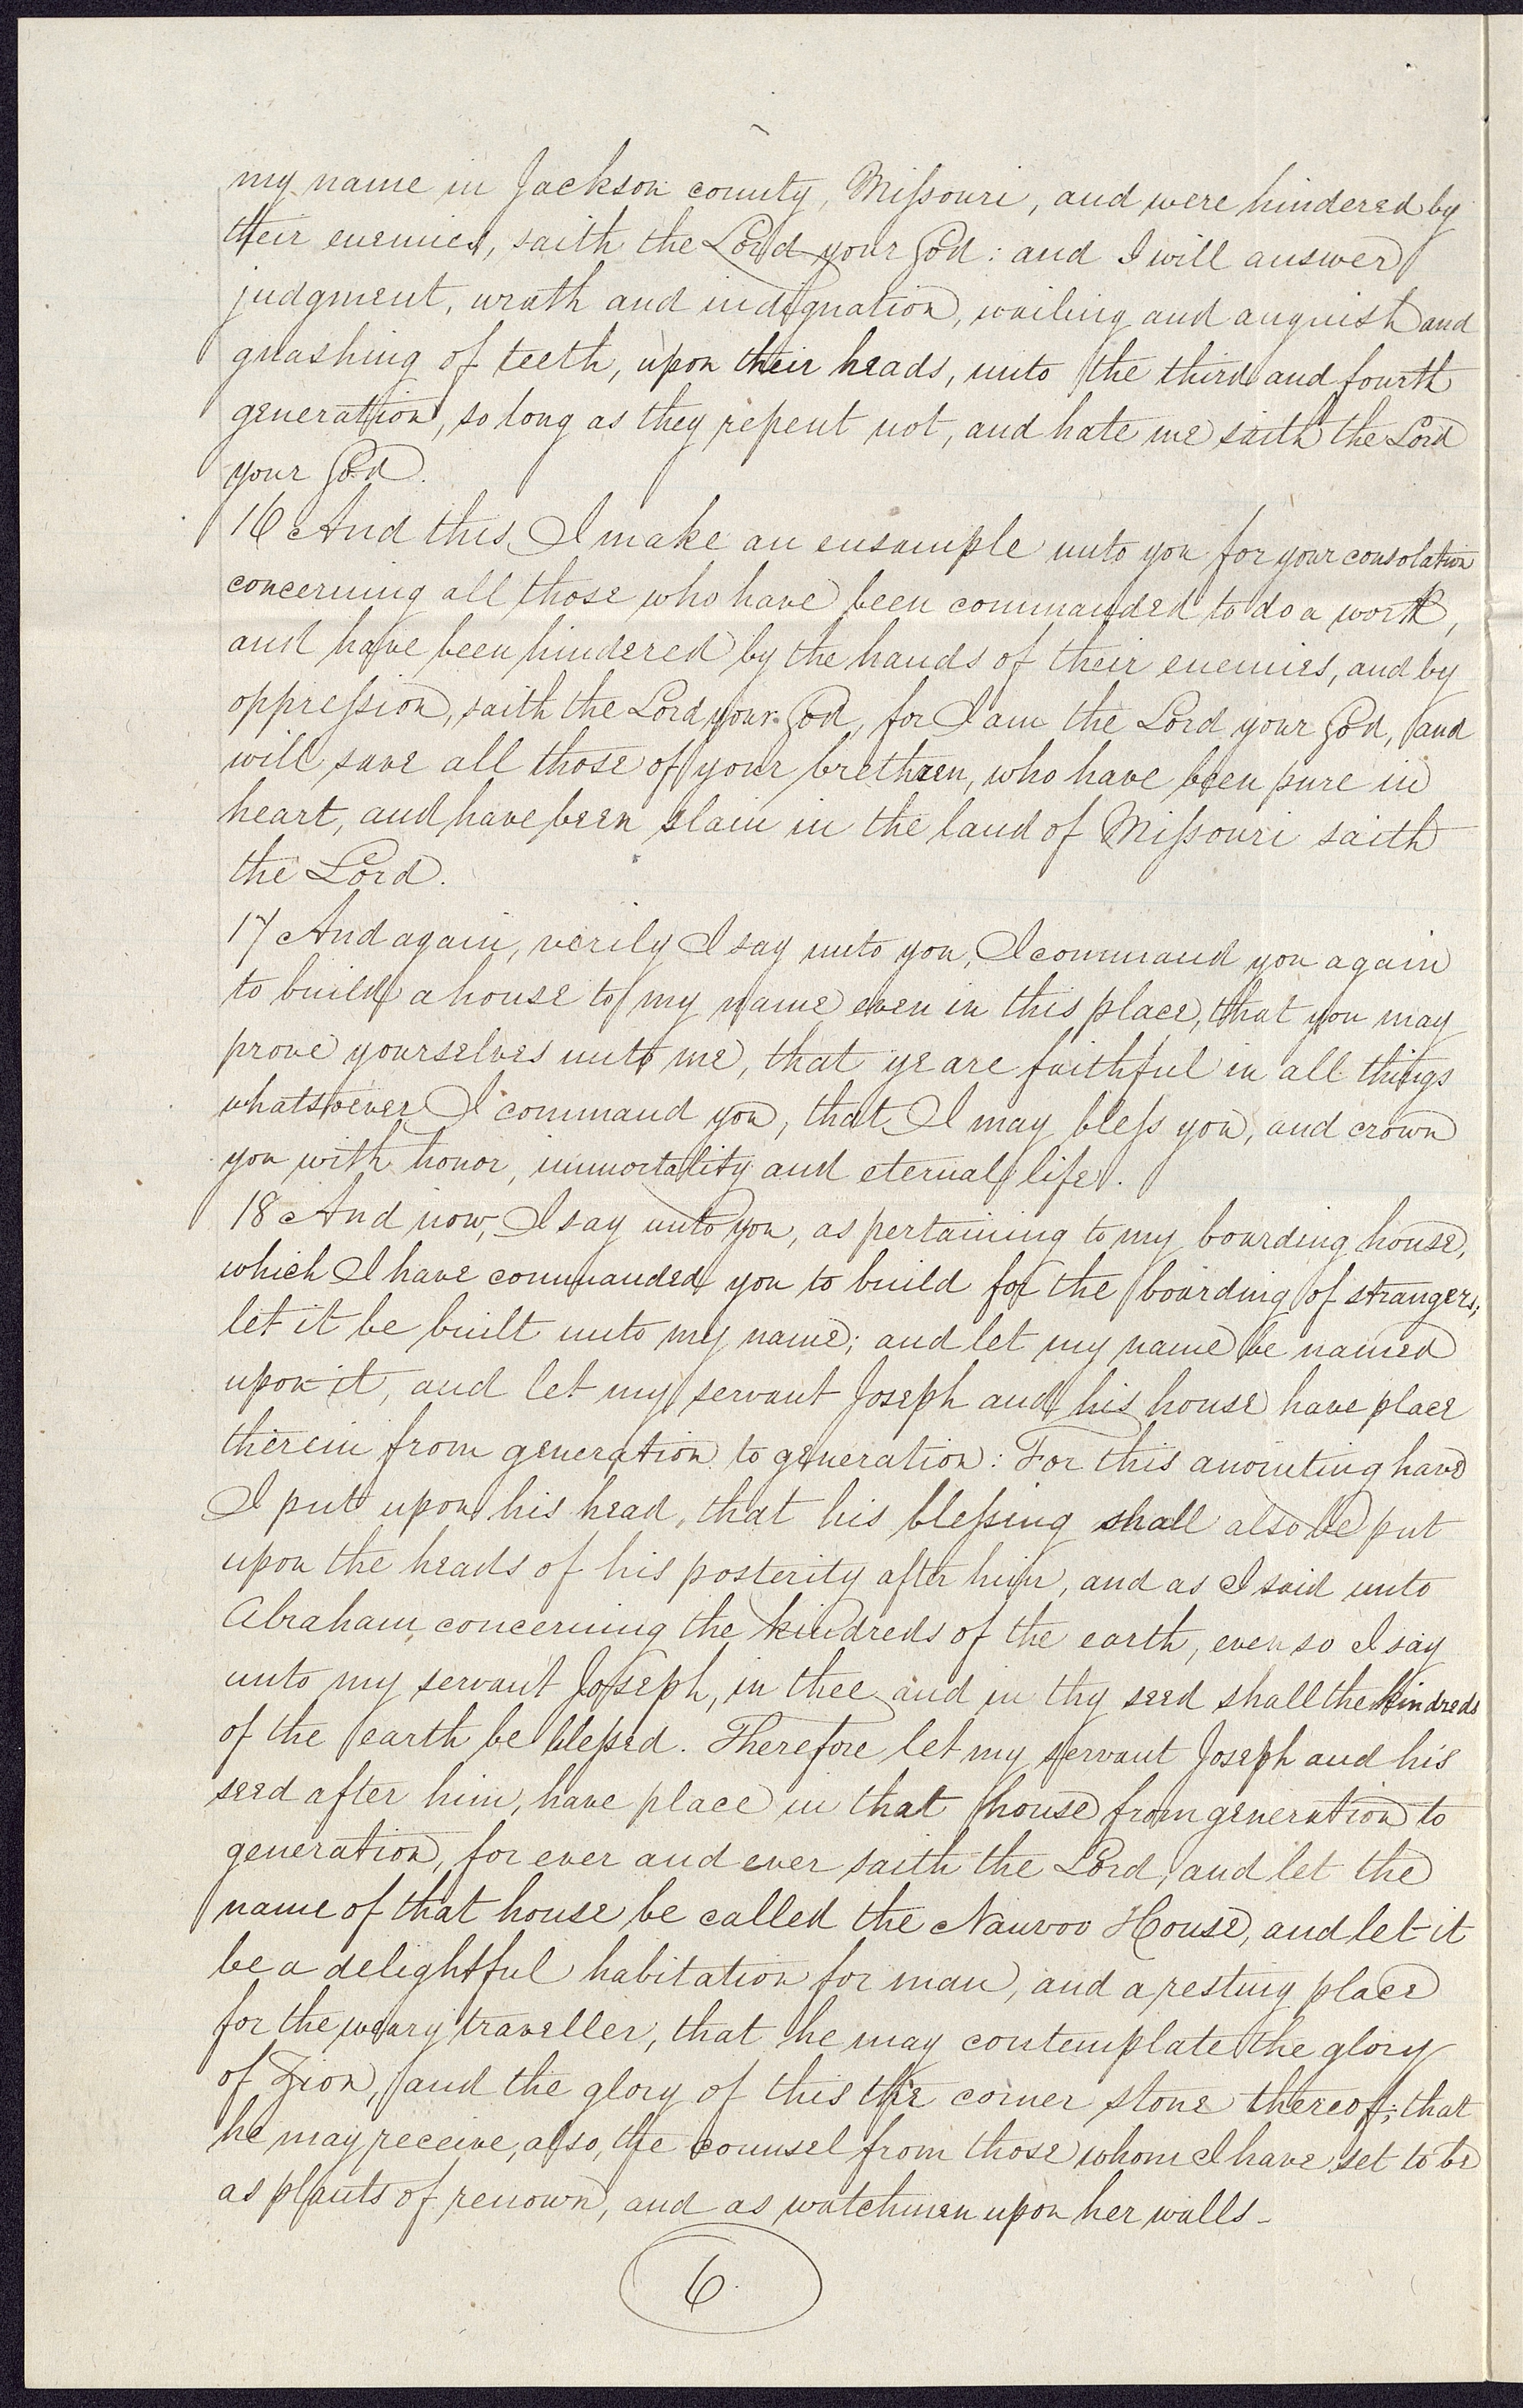 my name in Jackson county, Missouri, and were hindered by
their enemies, saith the Lord your God: and I will answer
judgment, wrath and indignation, wailing and anguish and
gnashing of teeth, upon their heads, unto the third and fourth
generation, so long as they repent not, and hate me saith the Lord
your God.
16 And this I make an ensample unto you for your consolation
concerning all those who have been commanded to do a work,
and have been hindered by the hands of their enemies, and by
oppression, saith the Lord your God, for I am the Lord your God, and
will save all those of your brethren, who have been pure in
heart, and have been slain in the land of Missouri saith
the Lord.
17 And again, verily I say unto you, I command you again
to build a house to my name even in this place, that you may
prove yourselves unto me, that ye are faithful in all things
whatsoever I command you, that I may bless you, and crown
you with honor, immortality and eternal life.
18 And now, I say unto you, as pertaining to my boarding house,
which I have commanded you to build for the boarding of strangers;
let it be built unto my name; and let my name be named
upon it, and let my servant Joseph and his house have place
therein from generation to generation: For this anointing have
I put upon his head, that his blessing shall also be put
upon the heads of his posterity after him, and as I said unto
Abraham concerning the kindreds of the earth, even so I say
unto my servant Joseph, in thee and in thy seed shall the kindreds
of the earth be blessed. Therefore let my servant Joseph and his
seed after him, have place in that house from generation to
generation, for ever and ever saith the Lord, and let the
name of that house be called the Nauvoo House, and let it
be a delightful habitation for man, and a resting place
for the weary traveller, that he may contemplate the glory
of Zion, and the glory of this the corner stone thereof; that
he may receive, also, the counsel from those whom I have set to be
as plants of renown, and as watchmen upon her walls-
6